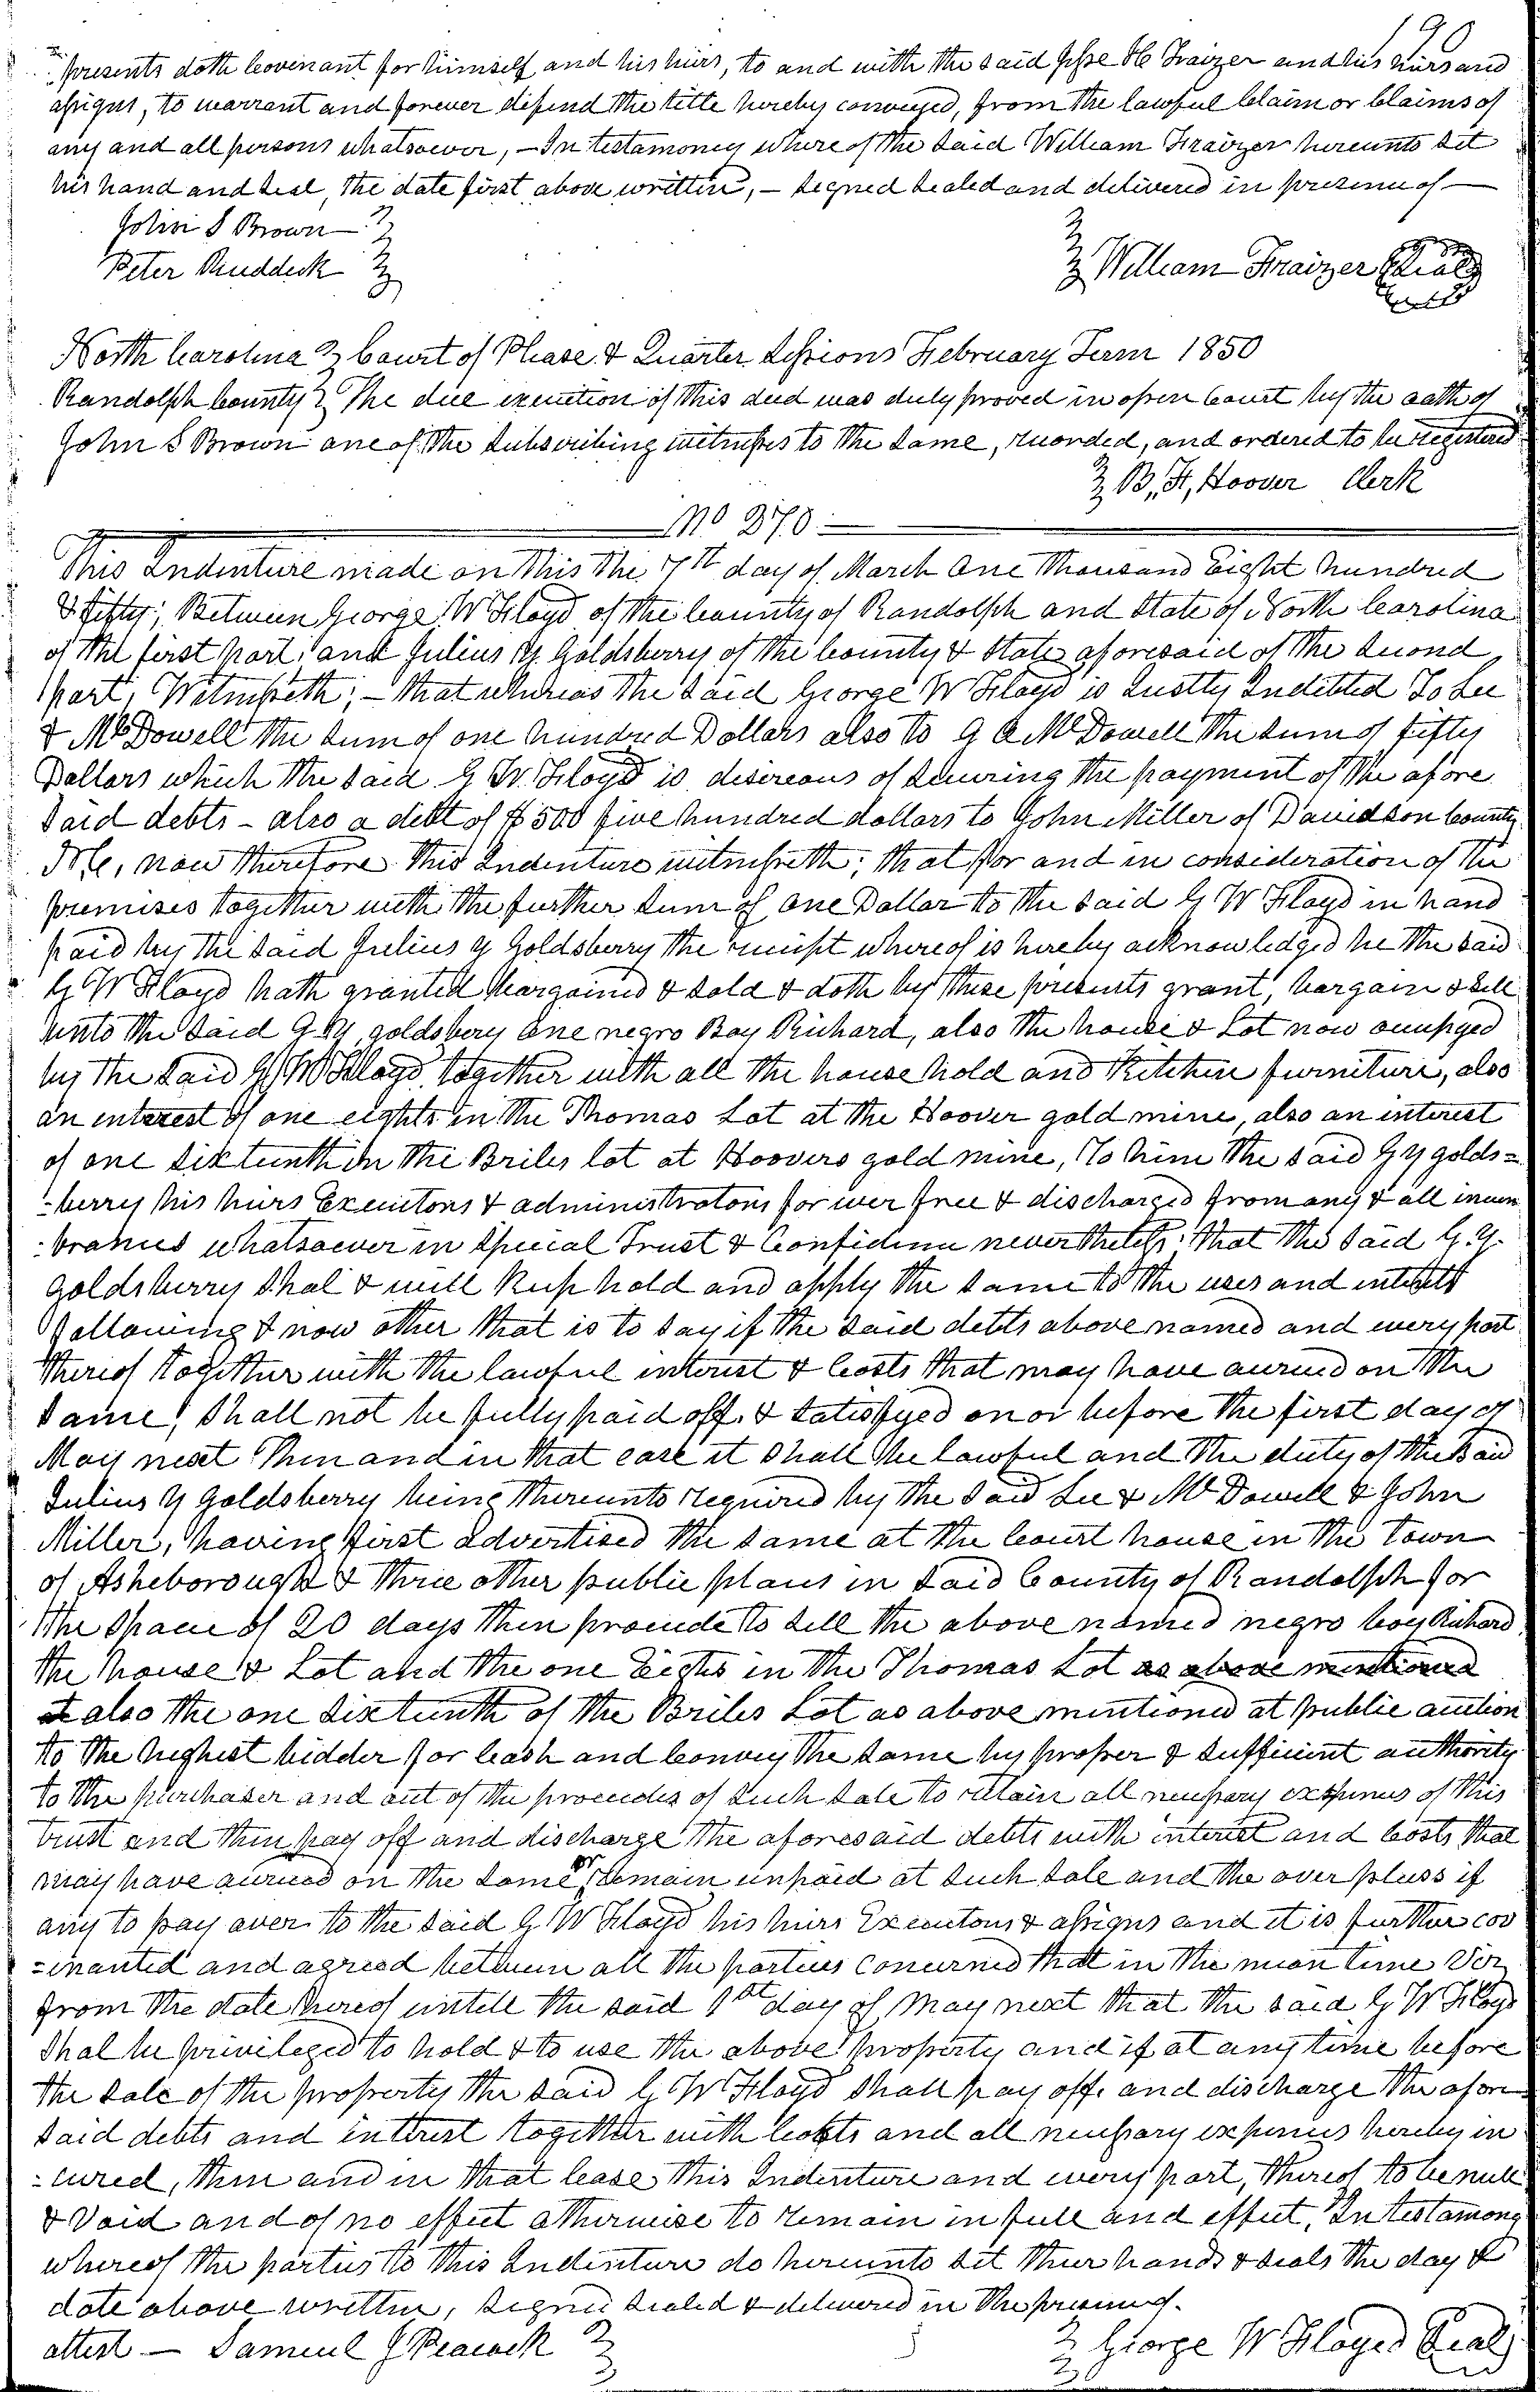 190
presents doth Covenant for himself and his heirs, to and with the said Jesse H Fraizer and his heirs and
assigns, to warrant and forever defend the title hereby conveyed, from the lawful Claim or Claims of
any and all persons whatsoever, – In testamoney where of the said William Fraizer hereunto set
his hand and seal, the date first above written, – Signed Sealed and delivered in presence of —
John S Brown
Peter Ruddeck
William Fraizer Seal
North Carolina Court of Please & Quarter Sessions February Term 1850
Randolph County The due execution of this deed was duly proved in open Court by the oath of
John S Brown one of the Subscribing witnesses to the same, recorded, and ordered to be registered
B, F, Hoover Clerk
No 270 –
This Indenture made on this the 7th day of March One Thousand Eight hundred
& fifty; Between George W Floyd of the County of Randolph and State of North Carolina
of the first part, and Julius Y. Goldsberry of the County & State aforesaid of the Second
part, Witnesseth; – that whereas the said George W Floyd is Justly Indebted To Lee
& McDowell the sum of one hundred Dollars also to McDowell the sum of fifty
Dollars which the said G W. Floyd is desireous of securing the payment of the afore
said debts – also a debt of $500 five hundred dollars to John Miller of Davidson County
N C, now therefore this Indenture witnesseth; that for and in consideration of the
premises together with the further sum of one Dollar to the said G W Floyd in hand
paid by the said Julius Y Goldsberry the receipt whereof is hereby acknowledged he the said
G W Floyd hath granted bargained & sold & doth by these presents grant, bargain & sell
unto the said goldsbery one negro Boy Richard, also the house & Lot now occupyed
by the said G W Floyd, together with all the house hold and Kitchen furniture, also
an interest of one eights in the Thomas Lot at the Hoover gold mine, also an interest
of one sixteenth in the Briles lot at Hoovers gold mine, To him the said golds=
-berry his heirs Executors & administrators for ever free & discharged from any & all incum
:brances whatsoever in Special Trust & Confidence nevertheless: that the said
goldsberry Shal & will keep hold and apply the same to the uses and intents
following & now other that is to say if the said debts above named and every part
thereof together with the lawful interest & Costs that may have accrued on the
same, shall not be fully paid off. & satisfyed on or before the first day of
May next then and in that case it shall be lawful and the duty of the said
Julius Y Goldsberry being thereunto required by the said Lee & McDowell & John
Miller, having first advertised the same at the Court house in the Town
of Asheborough & three other public places in said County of Randolph for
the space of 20 days then proceede to sell the above named negro boy Richard
the house & Lot and the one Eights in the Thomas Lot as above mentioned
also the one sixteenth of the Briles Lot as above mentioned at public auction
to the highest bidder for Cash and Convey the same by proper & sufficient authority
to the purchaser and out of the proceedes of such sale to retain all necessary expenses of this
trust and then pay off and discharge the aforesaid debts with interest and Costs that
may have accrued on the same or remain unpaid at such sale and the over pluss if
any to pay over to the said G. W Floyd his heirs Executors & assigns and it is further cov
=enanted and agreed between all the parties concerned that in the mean time
from the date hereof untill the said 1st day of May next that the said G W Floyd
shal be privileged to hold & to use the above property and if at any time before
the sale of the property the said G W Floyd shall pay off. and discharge the afore
said debts and interest together with Costs and all necessary expenses hereby in
-cured, then and in that Case this Indenture and every part, thereof to be null
& Void and of no effect otherwise to remain in full and effect, In testamony
whereof the parties to this Indenture do hereunto set their hands & seals the day &
date above written, signed sealed & delivered in the presence of.
attest — Samuel J Peacock
George W Floyed Seal